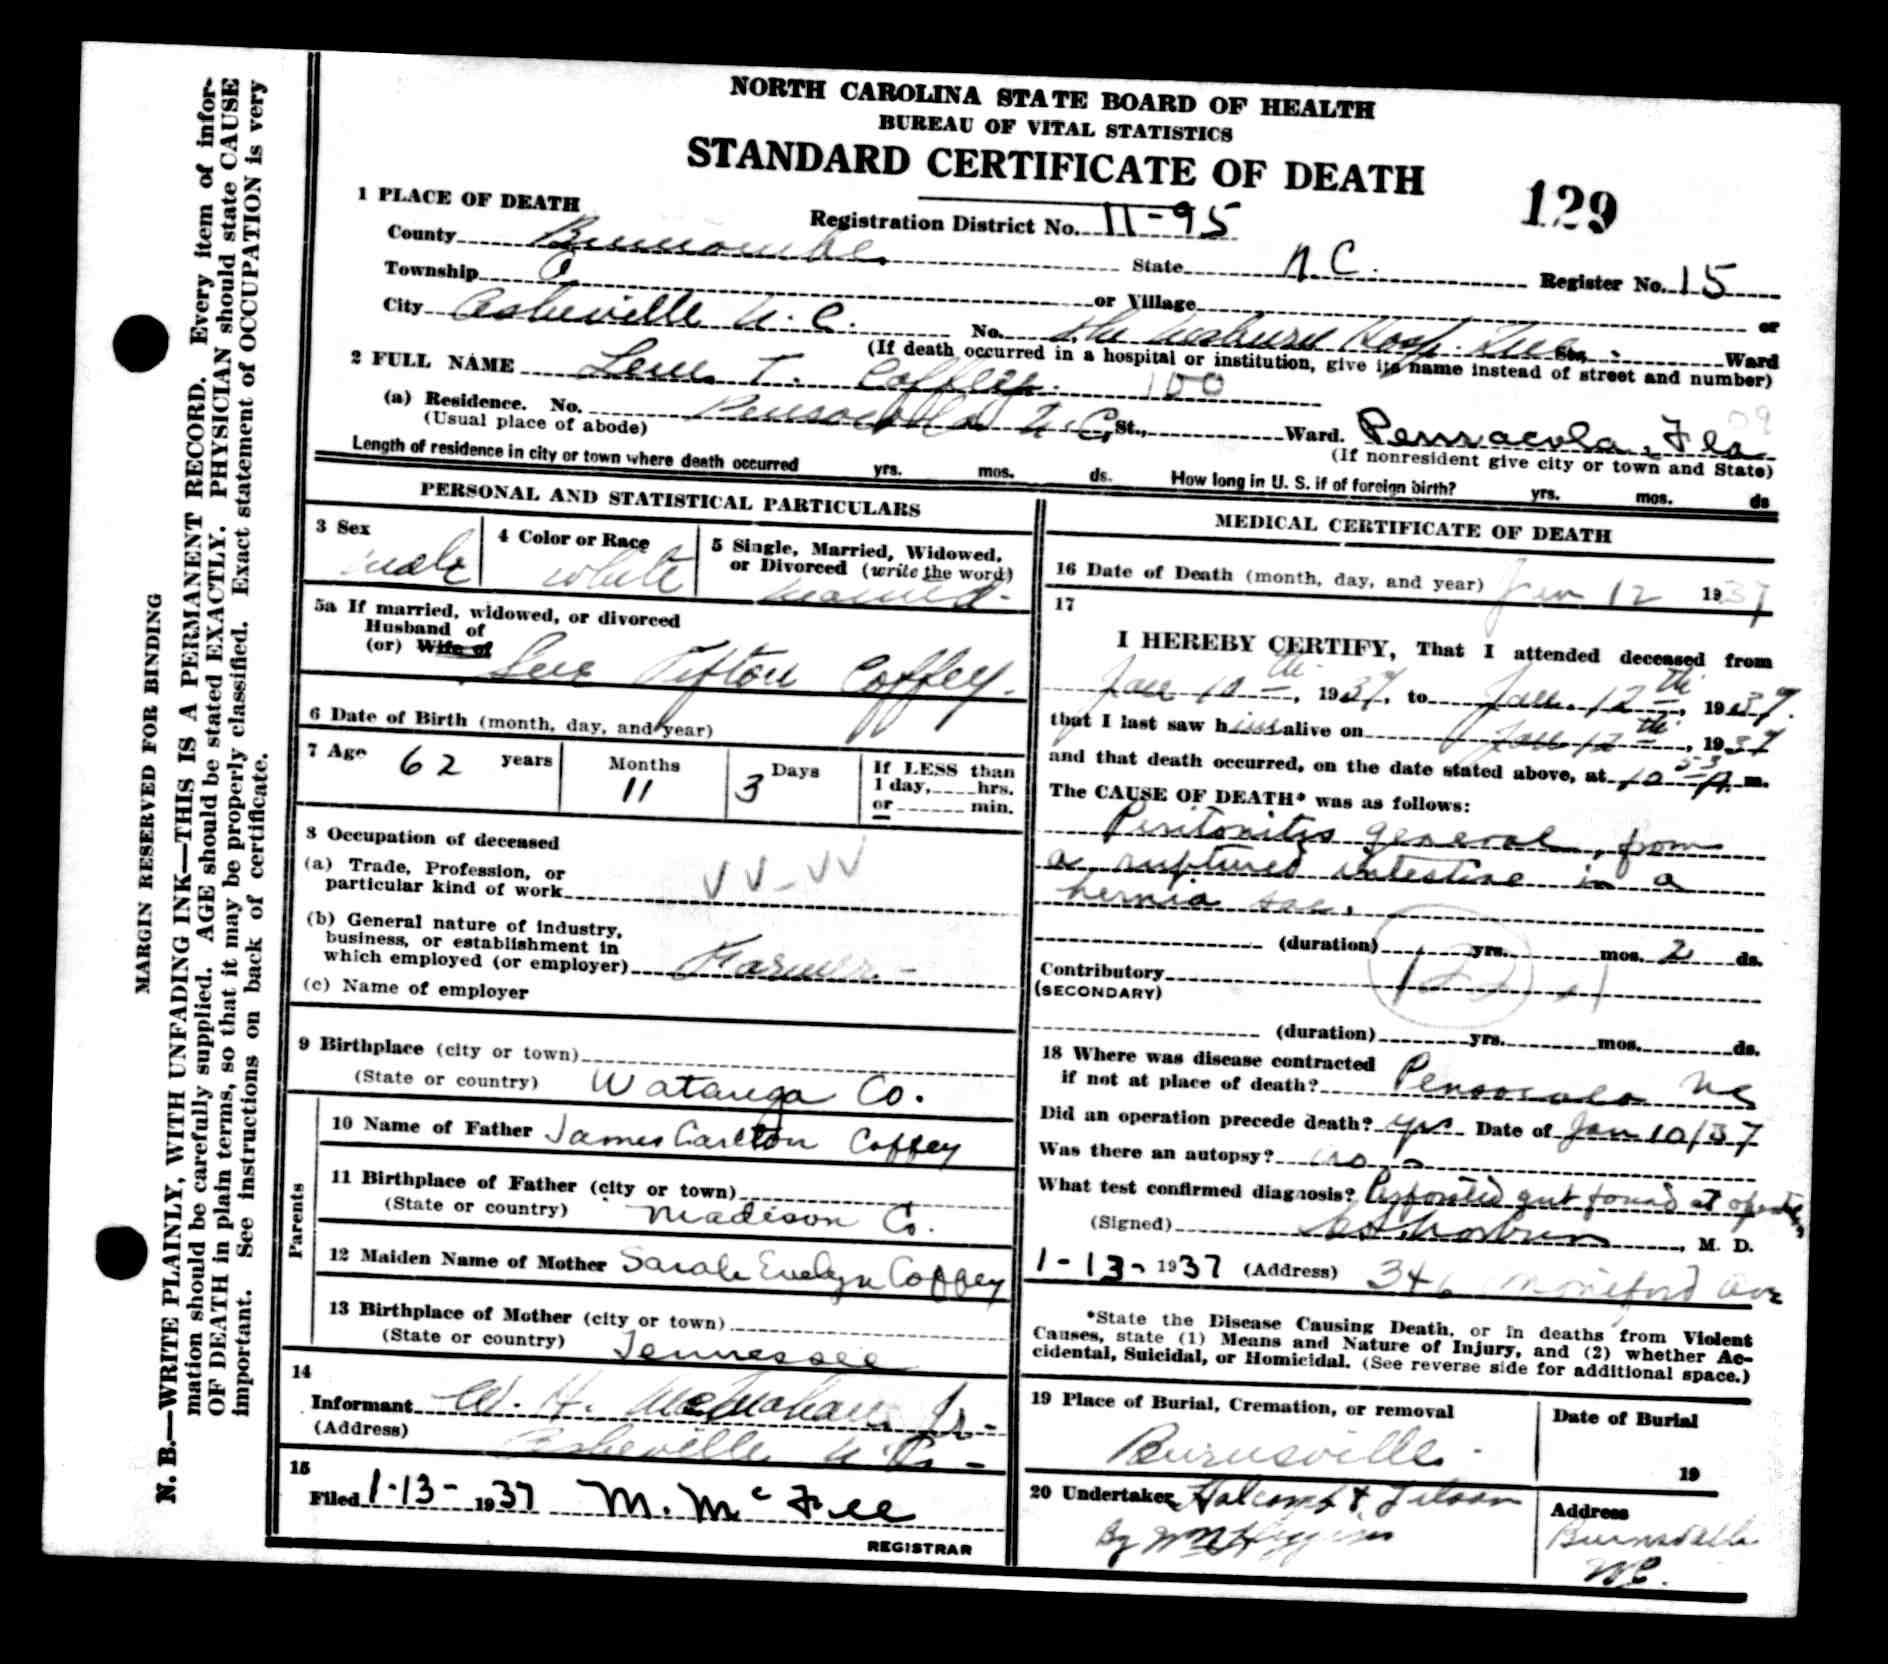 NORTH CAROLINA STATE BOARD OF HEALTH
BUREAU OF VITAL STATISTICS
STANDARD CERTIFICATE OF DEATH
129
1 PLACE OF DEATH
Registration District No. 11-95
County Buncombe State N C. Register No. 15
Township or Village or
City Asheville N. C. No. Hosp. St., Ward
(If death occurred in a hospital or institution, give its name instead of street and number)
2 FULL NAME T. Coffey. 100
(a) Residence. No. Pensacola N.C. St., Ward. Pensacola, Fla 09
(Usual place of abode) (If nonresident give city or town and State)
Length of residence in city or town where death occurred yrs. mos. ds. How long in U. S. if of foreign birth? yrs. mos. ds
PERSONAL AND STATISTICAL PARTICULARS
3 Sex male
4 Color or Race white
5 Single, Married, Widowed, or Divorced (write the word) married
5a If married, widowed, or divorced
Husband of
(or) Wife of Sue Tifton Coffey.
6 Date of Birth (month, day, and year)
7 Age 62 years Months 11 Days 3 If LESS than 1 day, hrs. or min.
8 Occupation of deceased
(a) Trade, Profession, or
particular kind of work VV-VV
(b) General nature of industry,
business, or establishment in
which employed (or employer) Farmer.-
(c) Name of employer
9 Birthplace (city or town)
(State or country) Watauga Co.
Parents
10 Name of Father James Carlton Coffey
11 Birthplace of Father (city or town)
(State or country) Madison Co.
12 Maiden Name of Mother Sarah Evelyn Coffey
13 Birthplace of Mother (city or town)
(State or country) Tennessee
14
Informant W. H. McMahan Jr-
(Address) Asheville N.C. -
15
Filed 1-13- 1937 M. McFee
REGISTRAR
MEDICAL CERTIFICATE OF DEATH
16 Date of Death (month, day, and year) Jan 12 1937
17
I HEREBY CERTIFY, That I attended deceased from
Jan 10th, 1937, to Jan. 12th, 1937.
that I last saw him alive on Jan 12th, 1937
and that death occurred, on the date stated above, at 10 53 m.
The CAUSE OF DEATH* was as follows:
Peritonitis general, from
a ruptured intestine in a
hernia sac.
(duration) yrs. mos. 2 ds.
Contributory
(SECONDARY)
(duration) yrs. mos. ds.
18 Where was disease contracted
if not at place of death? Pensacola NC
Did an operation precede death? yes Date of Jan 10/37
Was there an autopsy? no
What test confirmed diagnosis? Perforated gut found at operation
(Signed) , M. D.
1-13- 1937 (Address) 346 Montford Ave
*State the Disease Causing Death, or in deaths from Violent
Causes, state (1) Means and Nature of Injury, and (2) whether Ac-
cidental, Suicidal, or Homicidal. (See reverse side for additional space.)
19 Place of Burial, Cremation, or removal
Burnsville.
Date of Burial
19
20 Undertaker Holcomb &
By Wm Higgins
Address
Burnsville
NC.
MARGIN RESERVED FOR BINDING
N. B.—WRITE PLAINLY, WITH UNFADING INK—THIS IS A PERMANENT RECORD. Every item of infor-
mation should be carefully supplied. AGE should be stated EXACTLY. PHYSICIAN should state CAUSE
OF DEATH in plain terms, so that it may be properly classified. Exact statement of OCCUPATION is very
important. See instructions on back of certificate.